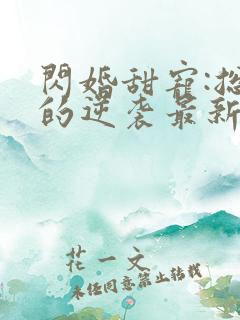 閃婚甜寵:
的逆袭最新
花一文
未经同意禁止转载